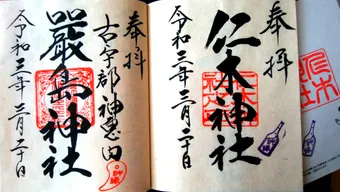 奉拝
仁木神社
令和三年三月二十日
奉拝
古宇郡神恵内
嚴島神社
令和三年三月二十日